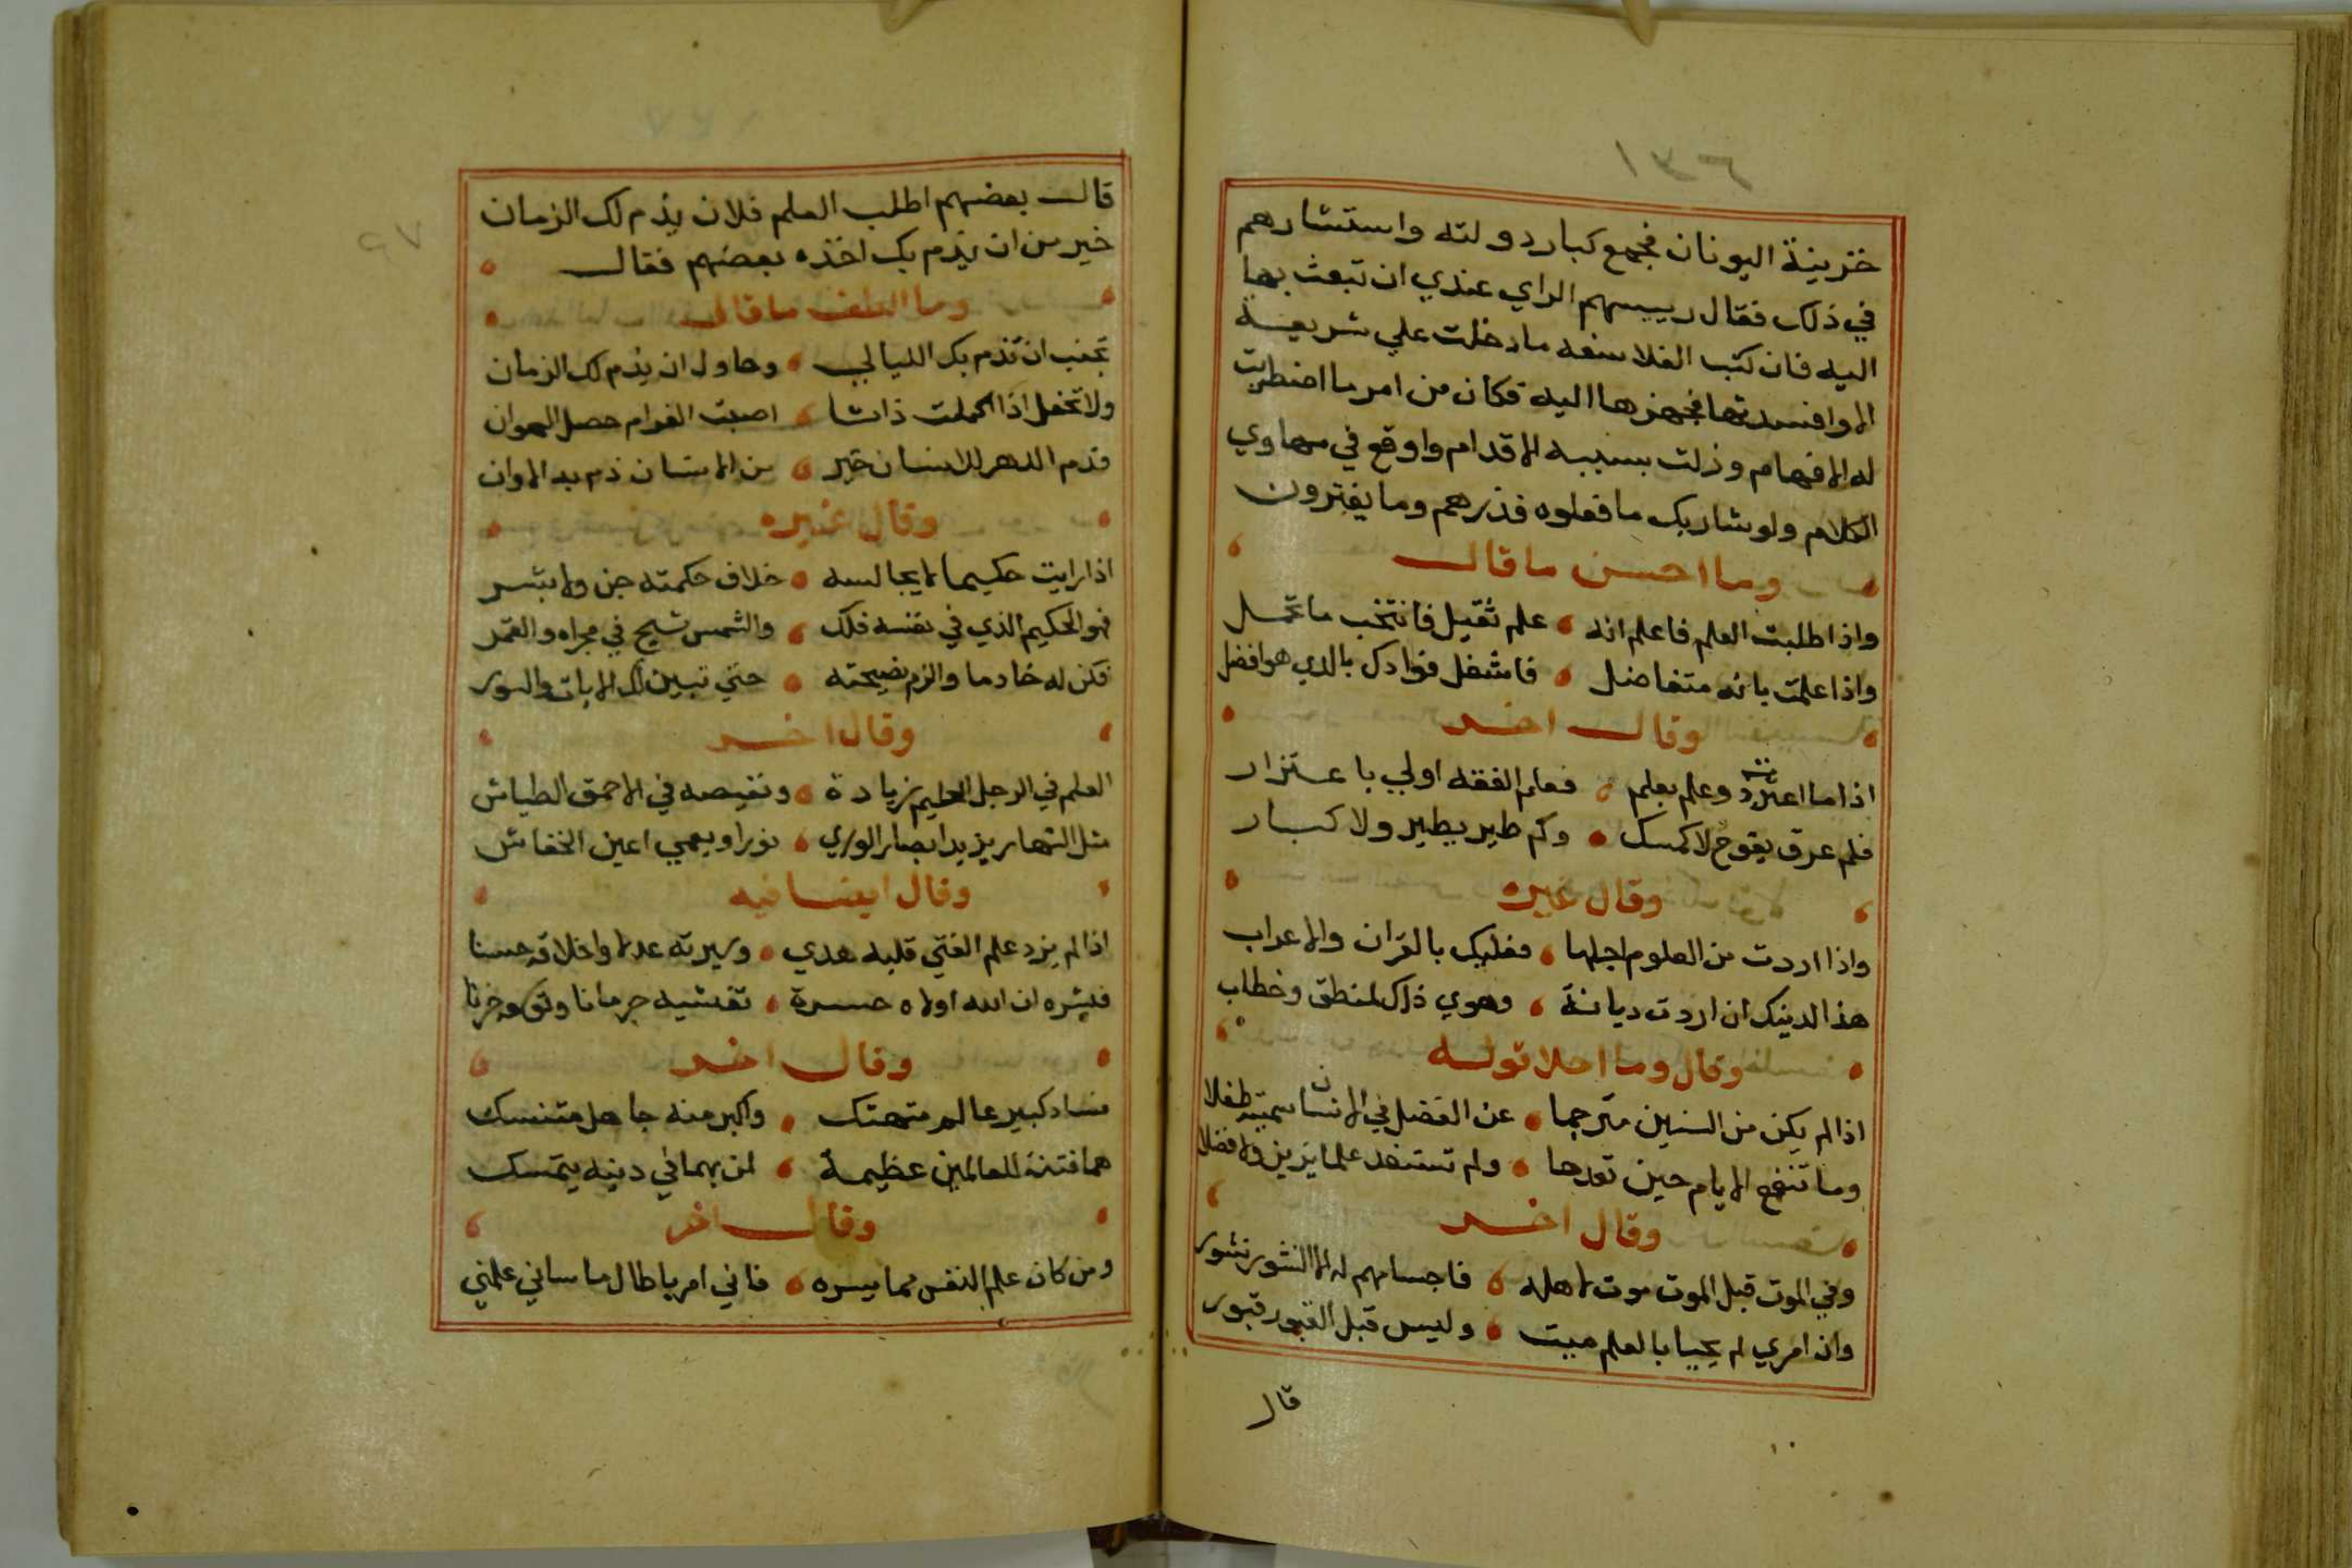 خزينة اليونان فجمع كبار دولته واستشارهم
في ذلك فقال رييسهم الراي عندي ان تبعث بها
اليه فان كتب الفلاسفه ما دخلت علي شريعة
الا وافسدتها فجهزها اليه فكان من امر ما اضطربت
له الافهام وزلت بسببه الاقدام واوقع في مهاوي
الكلام ولو شا ربك ما فعلوه فذرهم وما يفترون
وما احسن ما قال
واذا طلبت العلم فاعلم انه علم ثقيل فانتخب ما تحمل
واذا علمت بانه متفاضل فاشغل فوادك بالدي هو افضل
وقال اخر
اذا ما اعتز ذو علم بعلم فعلم الفقه اولي باعتزار
فلم عرق يفوح لا كمسك وكم طير يطير ولا كبار
وقال غيره
واذا اردت من العلوم اجلها فعليك بالقران والاعراب
هذا لدينك ان اردت ديانة وهوي ذاك لمنطق وخطاب
وقال وما احلا قوله
اذا لم يكن من السنين مترجما عن الفضل في الانسان سميته طفلا
وما تنفع الايام حين تعدها ولم تستفد علما يزين ولا فضلا
وقال اخر
وفي الموت قبل الموت موت لاهله فاجسامهم له الا النشور نشور
وان امري لم يحيا بالعلم ميت وليس قبل القبور قبور
قال
قالت بعضهم اطلب العلم فلان يذم لك الزمان
خير من ان يذم بك اخذه بعضهم فقال
وما الطف ما قال
تجنب ان تذم بك الليالي وحاول ان يذم لك الزمان
ولا تحفل اذا كملت ذاتا اصبت الفوام حصل الهوان
فذم الدهر للانسان خير من الانسان ذم به الاوان
وقال غيره
اذا رايت حكيما لا يجالسه خلاف حكمته جن ولا بشر
فهو الحكيم الذي في نفسه فلك والشمس تسبح في مجراه والقمر
فكن له خادما والزم نصيحته حتي تبين لك الايات والسور
وقال اخر
العلم في الرجل الحليم زيادة ونقيصه في الاحمق الطياش
مثل النهار يزيد ابصار الوري نورا ويعمي اعين الخفاش
وقال ايضا فيه
اذا لم يزد علم الفتي قلبه هدي وسيرته عدلا واخلاقه حسنا
فبشره ان الله اولاه حسرة تغشيه حرمانا وتوسعه حزنا
وقال اخر
فساد كبير عالم متهتك واكبر منه جاهل متنسك
هما فتنة للعالمين عظيمة لمن بهما في دينه يتمسك
وقال اخر
ومن كان علم النفس مما يسره فاني امر يا طال ما ساني علمي